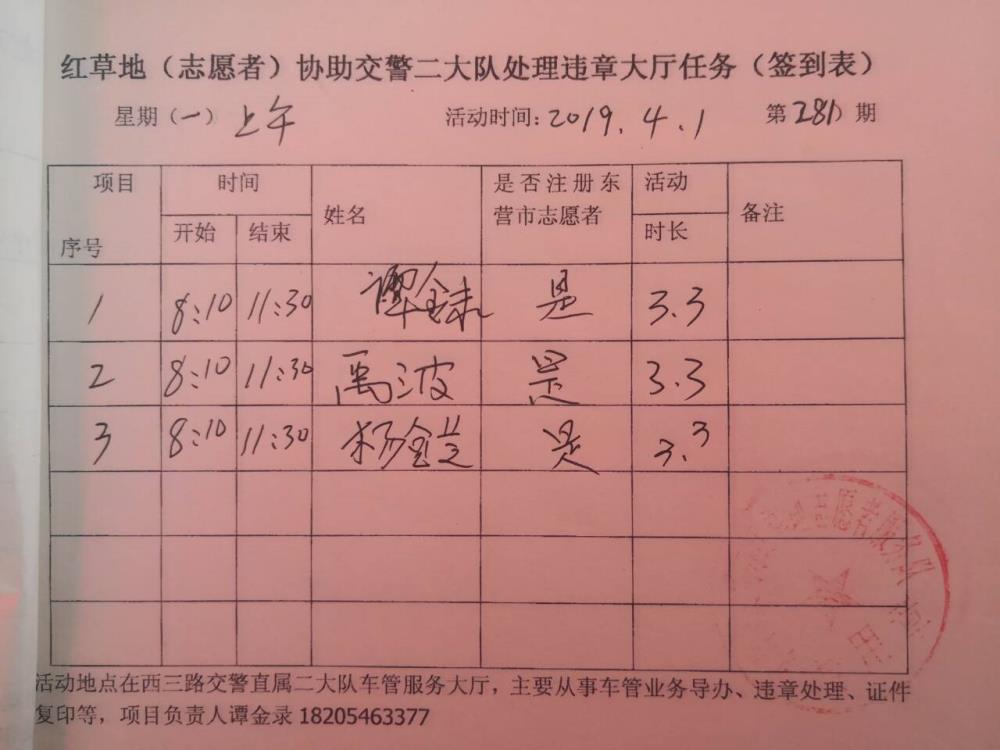 红草地（志愿者）协助交警二大队处理违章大厅任务（签到表）
星期（一）上午 活动时间：2019.4.1 第281）期
项目 时间 姓名 是否注册东营市志愿者 活动时长 备注
序号 开始 结束
1 8:10 11:30 谭金录 是 3.3
2 8:10 11:30 禹波 是 3.3
3 8:10 11:30 杨金兰 是 3.3
志愿者服务队
活动地点在西三路交警直属二大队车管服务大厅，主要从事车管业务导办、违章处理、证件
复印等，项目负责人谭金录 18205463377